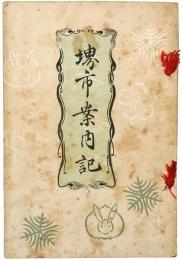 堺市案内記